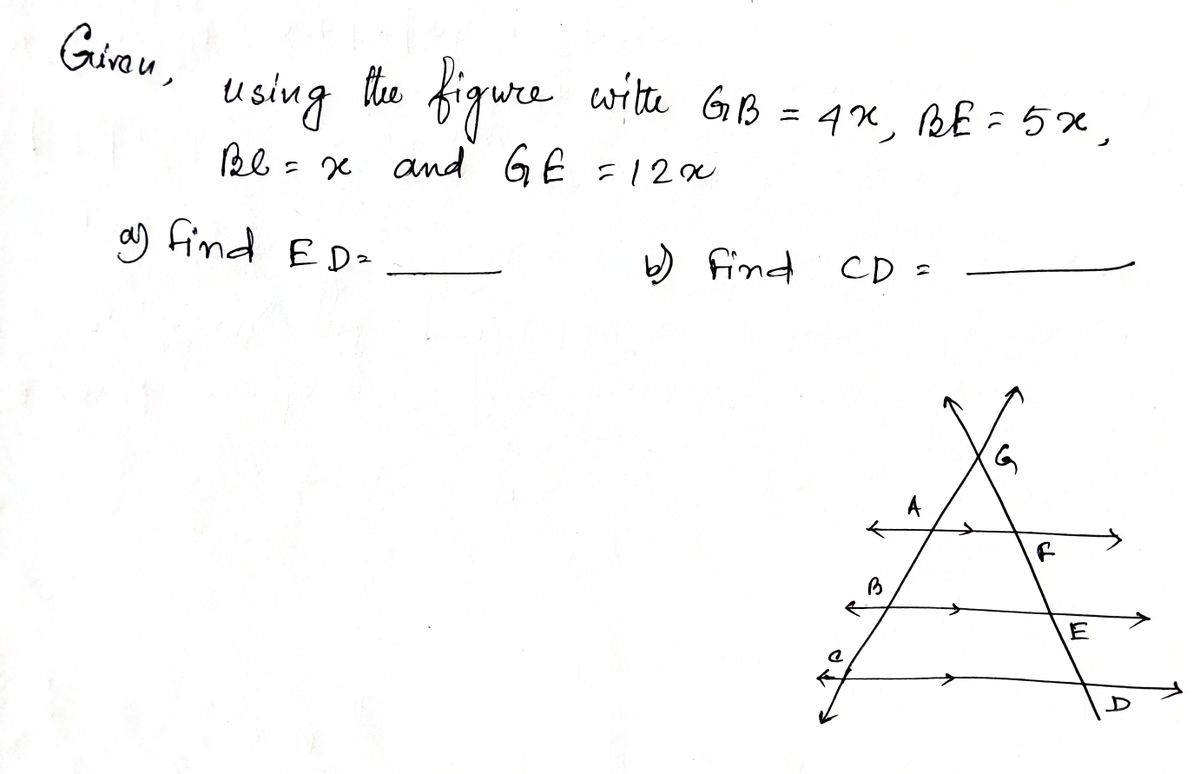 Given,
using the figure with GB = 4x, BE = 5x,
BC = x and GE = 12x
a) find ED = ____
b) find CD = ____
G
A
F
B
E
C
D